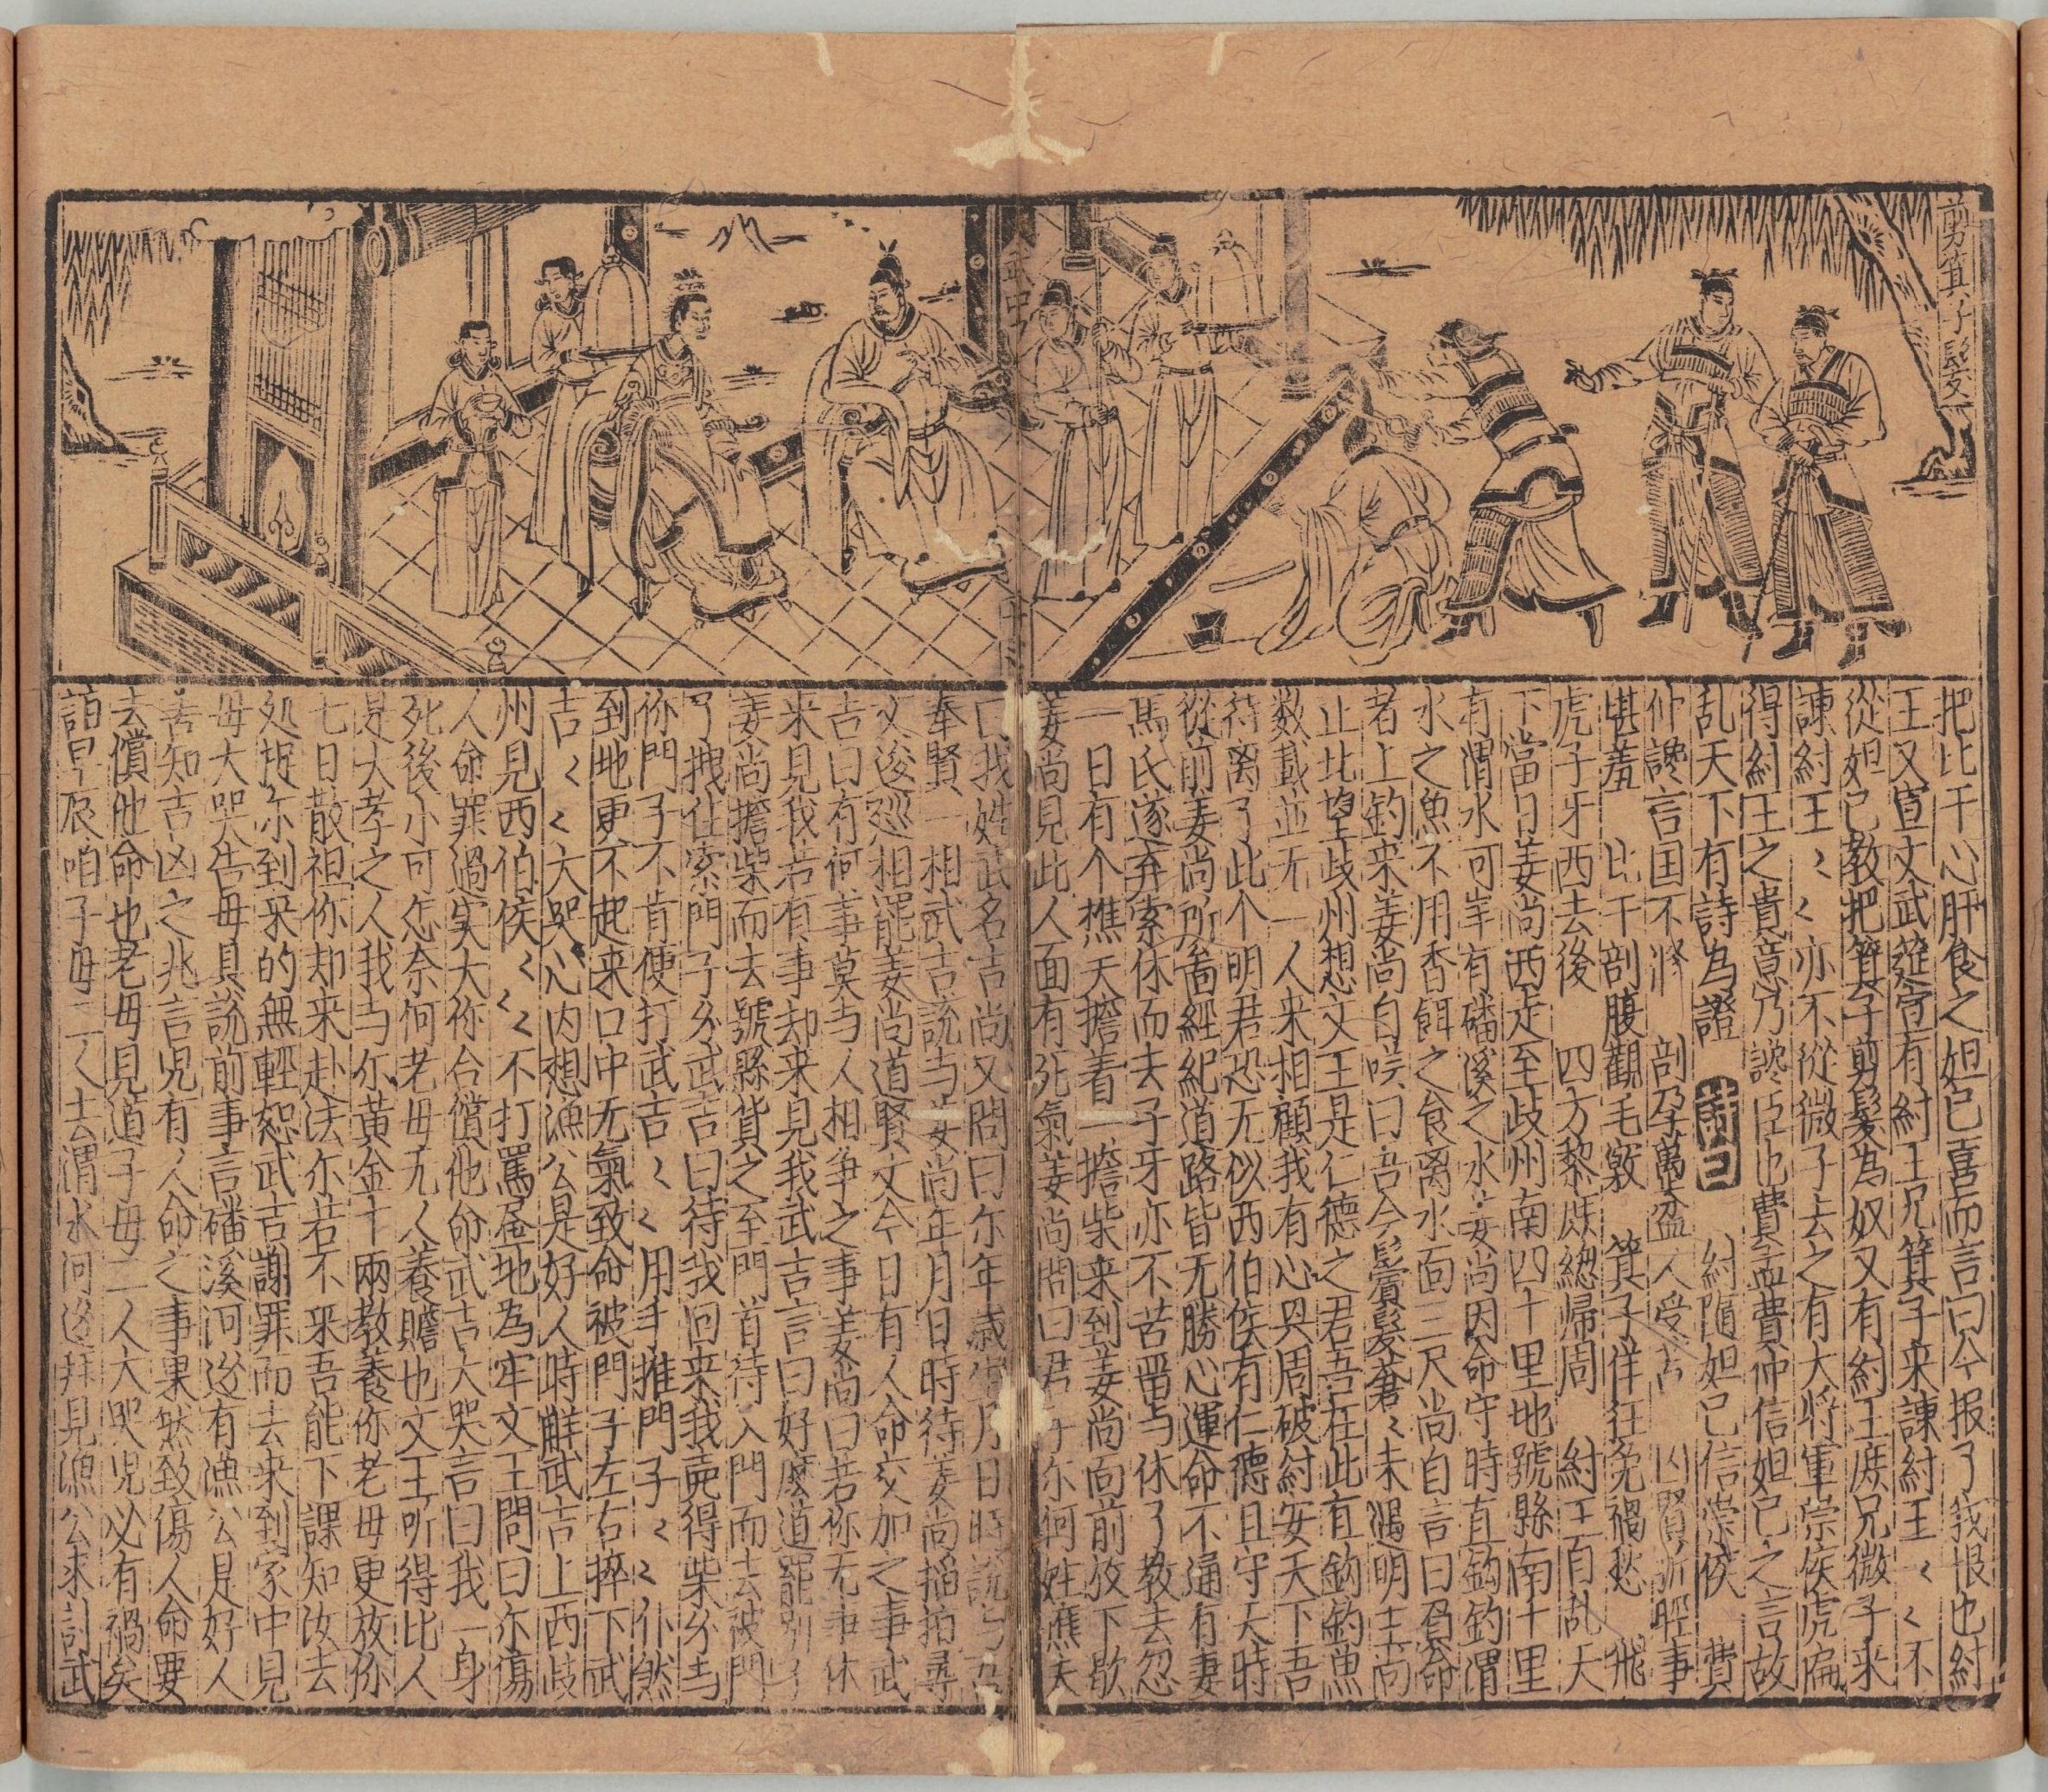 剪箕子髮
把比干心肝食之妲己喜而言曰今报了我恨也紂
王又宣文武筵宵有紂王兄箕子来諫紂王〻〻不
從妲己教把箕子剪髮為奴又有紂王庻兄微子来
諫紂王〻〻亦不從微子去之有大将軍崇侯虎扁
得紂王之貴意乃讒臣也費孟費仲信妲己之言故
乱天下有詩為證 詩曰 紂隨妲己信崇侯 費
仲讒言国不 剖孕蠆盆人受 賢斮脛事
堪羞 比干剖腹觀毛竅 箕子佯狂免禍愁 飛
虎子牙西去後 四方黎庻緫㱕周 紂王自乱天
下當日姜尚西走至歧州南四十里地號縣南十里
有渭水可岸有磻溪之水姜尚因命守時直鈎釣渭
水之魚不用香餌之食离水面三尺尚自言曰負命
者上釣来姜尚自咲曰吾今鬢髮蒼〻未遇明主尚
止北望歧州想文王是仁德之君吾在此直鈎釣魚
数載並无一人来相顧我有心與周破紂安天下吾
待离了此个明君恐无似西伯侯有仁德且守天時
從前姜尚所啚經紀道路皆无勝心運命不通有妻
馬氏遂弃索休而去子牙亦不苦畱与休了教去忽
一日有个樵夫擔着一擔柴来到姜尚向前放下歇
姜尚見此人面有死氣姜尚問曰君子尓何姓樵夫
曰我姓武名吉尚又問曰尓年歲生月日時說与吾
奉賢一相武吉說与姜尚年月日時待姜尚掐拍尋
文逡巡相罷姜尚道賢丈今日有人命交加之事武
吉曰有何事莫与人相争之事姜尚曰若你无事休
来見我若有事却来見我武吉言曰好麽道罷别了
姜尚擔柴而去號縣貨之至門首待入門而去被門
了拽住索門子分武吉曰待我回来我卖得柴分与
你門子不肯便打武吉〻〻用手推門子〻〻仆然
到地更不起来口中无氣致命被門子左右捽下武
吉〻〻大哭心内想漁公是好人時觧武吉上西歧
州見西伯侯〻〻不打罵畫地為牢文王問曰尓傷
人命罪過实大你合償他命武吉大哭言曰我一身
死後小可怎奈何老母无人養贍也文王听得比人
是大孝之人我与尓黄金十兩教養你老母更放你
七日散祖你却来赴法尓若不来吾能下課知汝去
処捉尓到来的無輕恕武吉謝罪而去来到家中見
母大哭告母具說前事言磻溪河邊有漁公是好人
善知吉凶之兆言児有人命之事果然致傷人命要
去償他命也老母見道子母二人大哭児必有禍矣
詣早辰咱子母二人去渭水河邊拜見漁公求討武